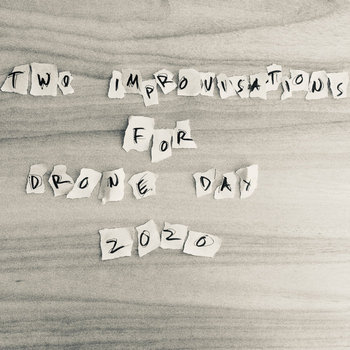 TWO IMPROVISATIONS
FOR
DRONE DAY
2020